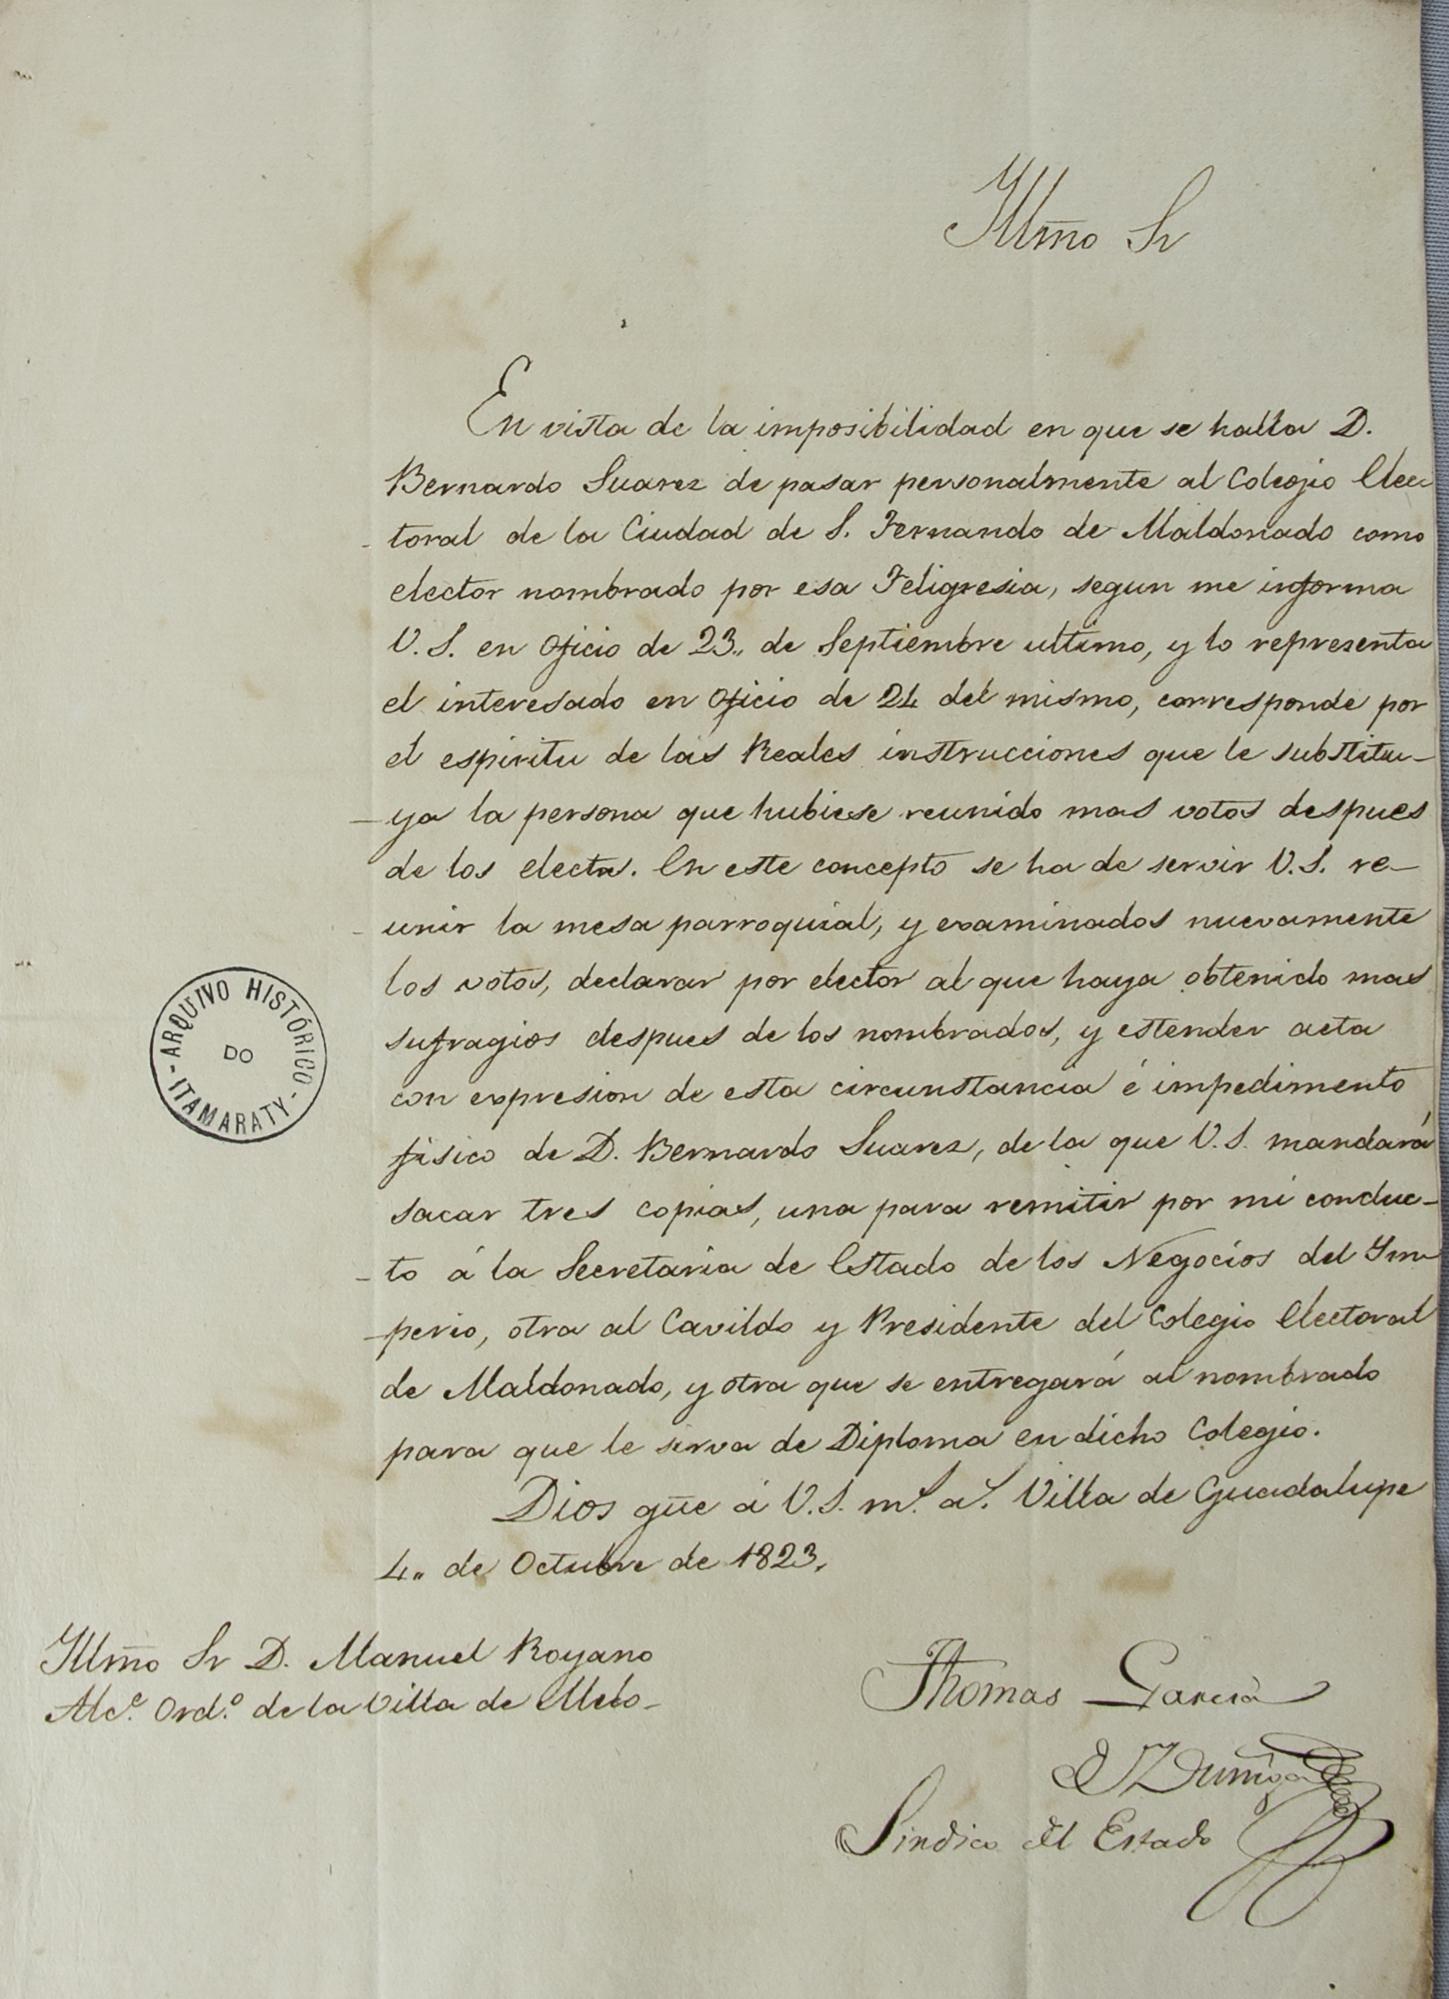 Yllm̃o Sr
En vista de la imposibilidad en que se halla D.
Bernardo Suarez de pasar personalmente al Colegio Elec-
-toral de la Ciudad de S. Fernando de Maldonado como
elector nombrado por esa Feligresia, segun me informa
V.S. en oficio de 23,, de Septiembre ultimo, y lo representa
el interesado en oficio de 24 del mismo, corresponde por
el espiritu de las Reales instrucciones que le substitu-
-ya la persona que hubiese reunido mas votos despues
de los elect.s. En este concepto se ha de servir V.S. re-
-unir la mesa parroquial, y examinados nuevamente
los votos, declarar por elector al que haya obtenido mas
sufragios despues de los nombrados, y estender acta
con expresion de esta circunstancia é impedimento
fisico de D. Bernardo Suarez, de la que V.S. mandará
sacar tres copias, una para remitir por mi conduc-
-to á la Secretaria de Estado de los Negocios del Ym-
-perio, otra al Cavildo y Presidente del Colegio Electoral
de Maldonado, y otra que se entregará al nombrado
para que le sirva de Diploma en dicho Colegio.
Dios gũe á V.S. m.s a.s Villa de Guadalupe
4,, de Octubre de 1823.
Yllm̃o Sr D. Manuel Royano
Alc.e Ord.o de la Villa de Melo-
Thomas Garcia
d Zuñiga
Sindico del Estado
- ARQUIVO HISTÓRICO -
DO
ITAMARATY